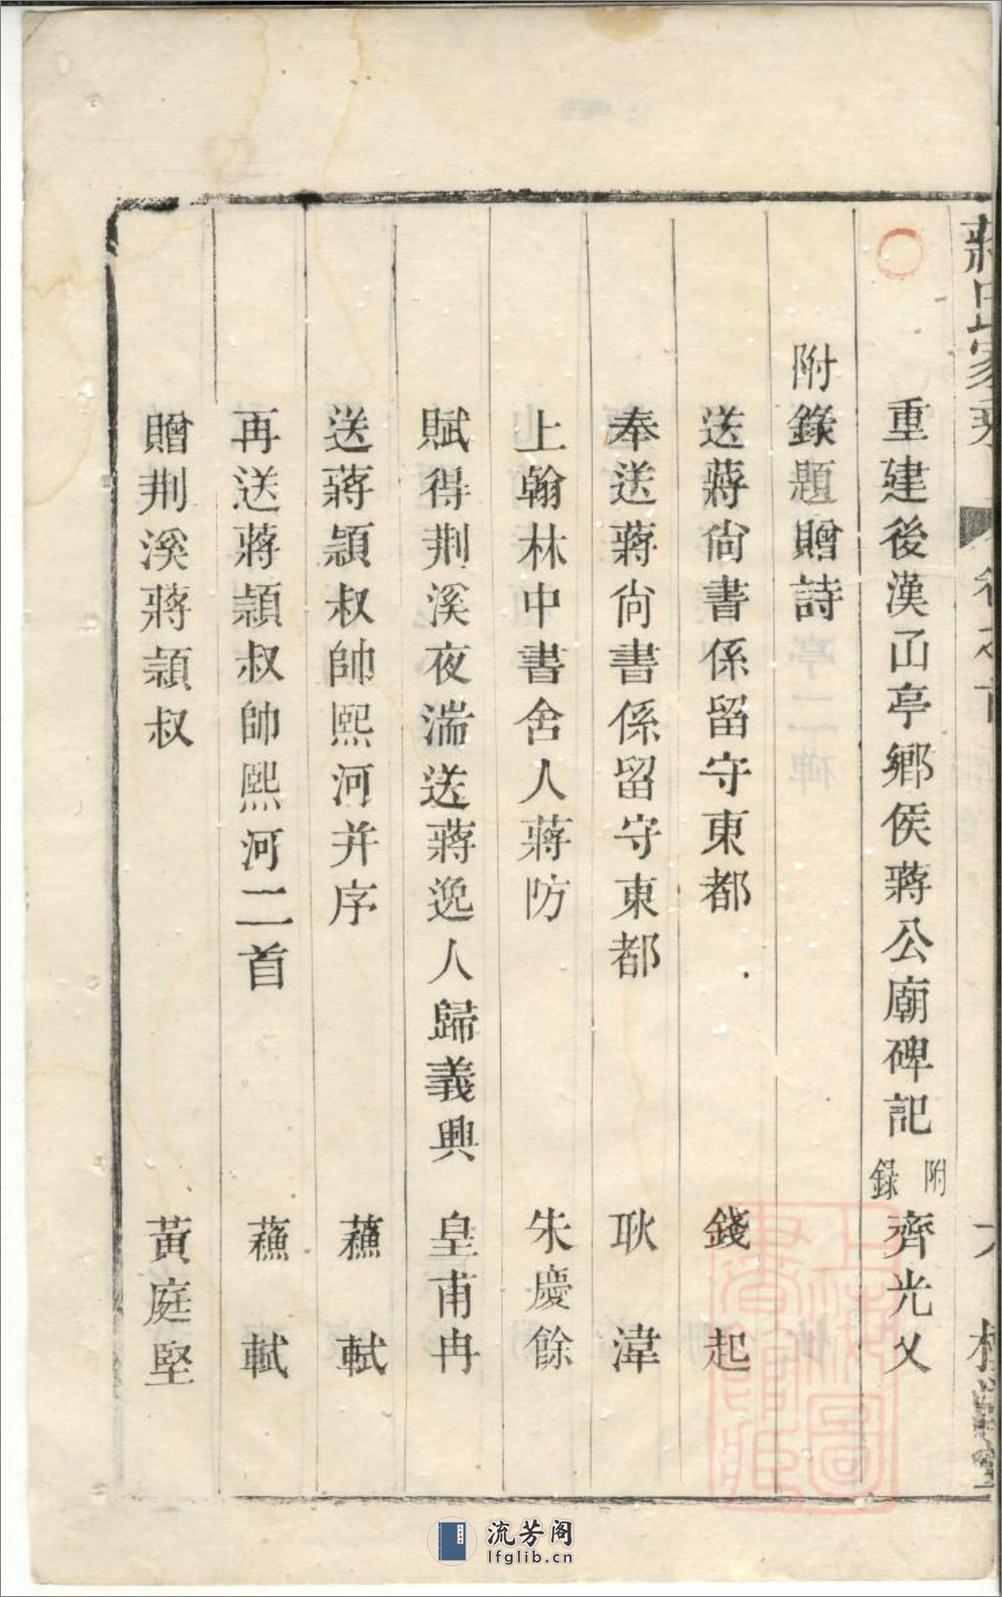 蔣氏家乘
重建後漢㓋亭鄉侯蔣公廟碑記 附錄 齊光乂
附錄題贈詩
送蔣尙書係留守東都 錢起
奉送蔣尙書係留守東都 耿湋
上翰林中書舍人蔣防 朱慶餘
賦得荆溪夜湍送蔣逸人歸義興 皇甫冉
送蔣頴叔帥熙河并序 蘓軾
再送蔣頴叔帥熙河二首 蘓軾
贈荆溪蔣頴叔 黃庭堅
上海圖書館藏
流芳阁
lfglib.cn